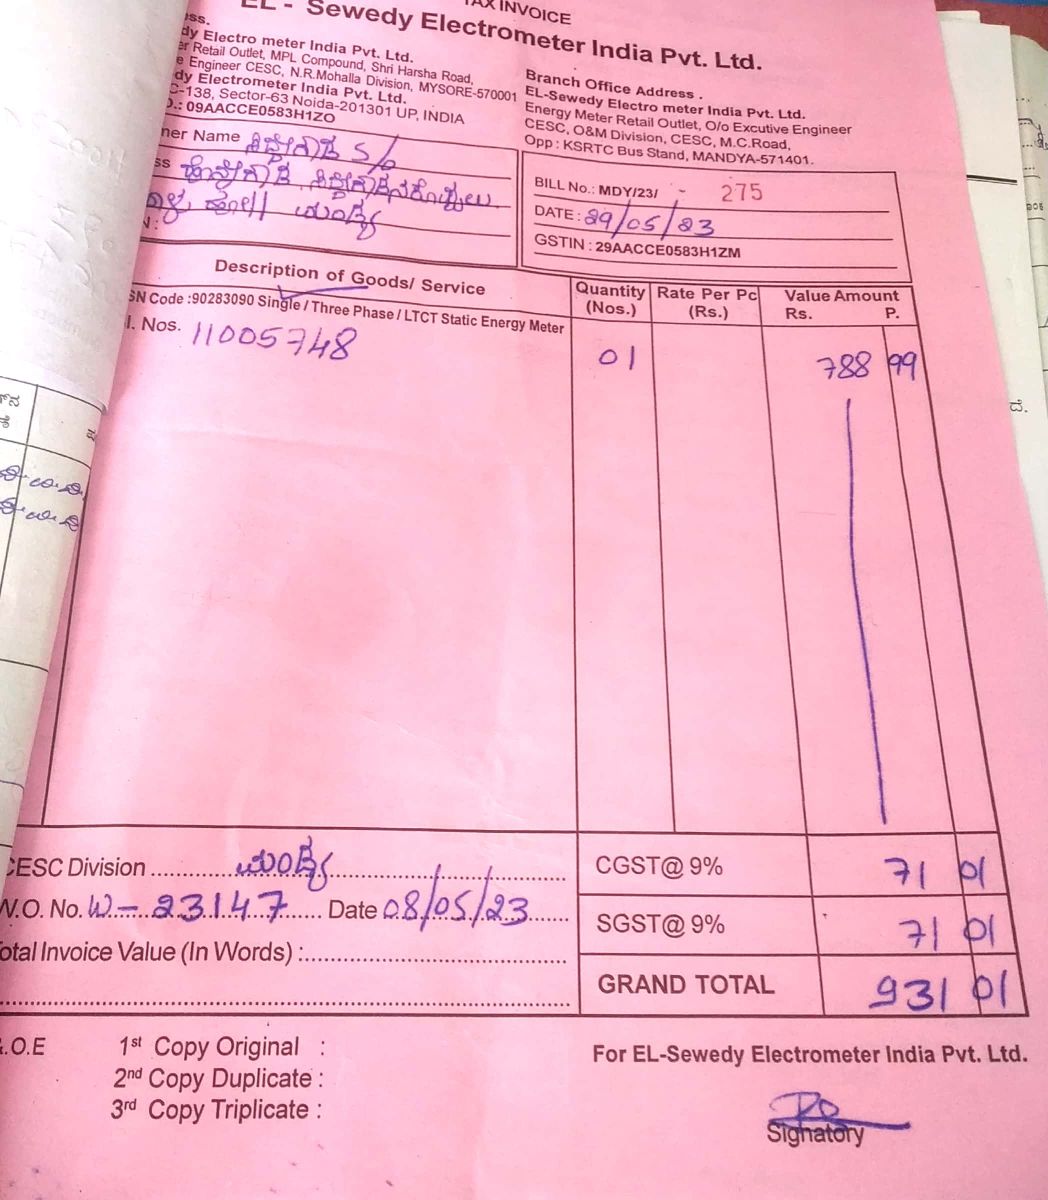 TAX INVOICE
EL - Sewedy Electrometer India Pvt. Ltd.
ess.
dy Electro meter India Pvt. Ltd.
er Retail Outlet, MPL Compound, Shri Harsha Road,
e Engineer CESC, N.R.Mohalla Division, MYSORE-570001
dy Electrometer India Pvt. Ltd.
C-138, Sector-63 Noida-201301 UP, INDIA
.: 09AACCE0583H1ZO
Branch Office Address .
EL-Sewedy Electro meter India Pvt. Ltd.
Energy Meter Retail Outlet, O/o Excutive Engineer
CESC, O&M Division, CESC, M.C.Road,
Opp : KSRTC Bus Stand, MANDYA-571401.
ner Name S/o
ss
ಮಂಡ್ಯ
N :
BILL No.: MDY/23/ - 275
DATE : 29/05/23
GSTIN : 29AACCE0583H1ZM
Description of Goods/ Service Quantity (Nos.) Rate Per Pc (Rs.) Value Amount Rs. P.
SN Code :90283090 Single / Three Phase / LTCT Static Energy Meter
l. Nos. 11005748 01 788 99
CESC Division ಮಂಡ್ಯ CGST@ 9% 71 01
W.O. No. W-23147 Date 08/05/23 SGST@ 9% 71 01
otal Invoice Value (In Words) : GRAND TOTAL 931 01
.O.E
1st Copy Original :
2nd Copy Duplicate :
3rd Copy Triplicate :
For EL-Sewedy Electrometer India Pvt. Ltd.
Signatory